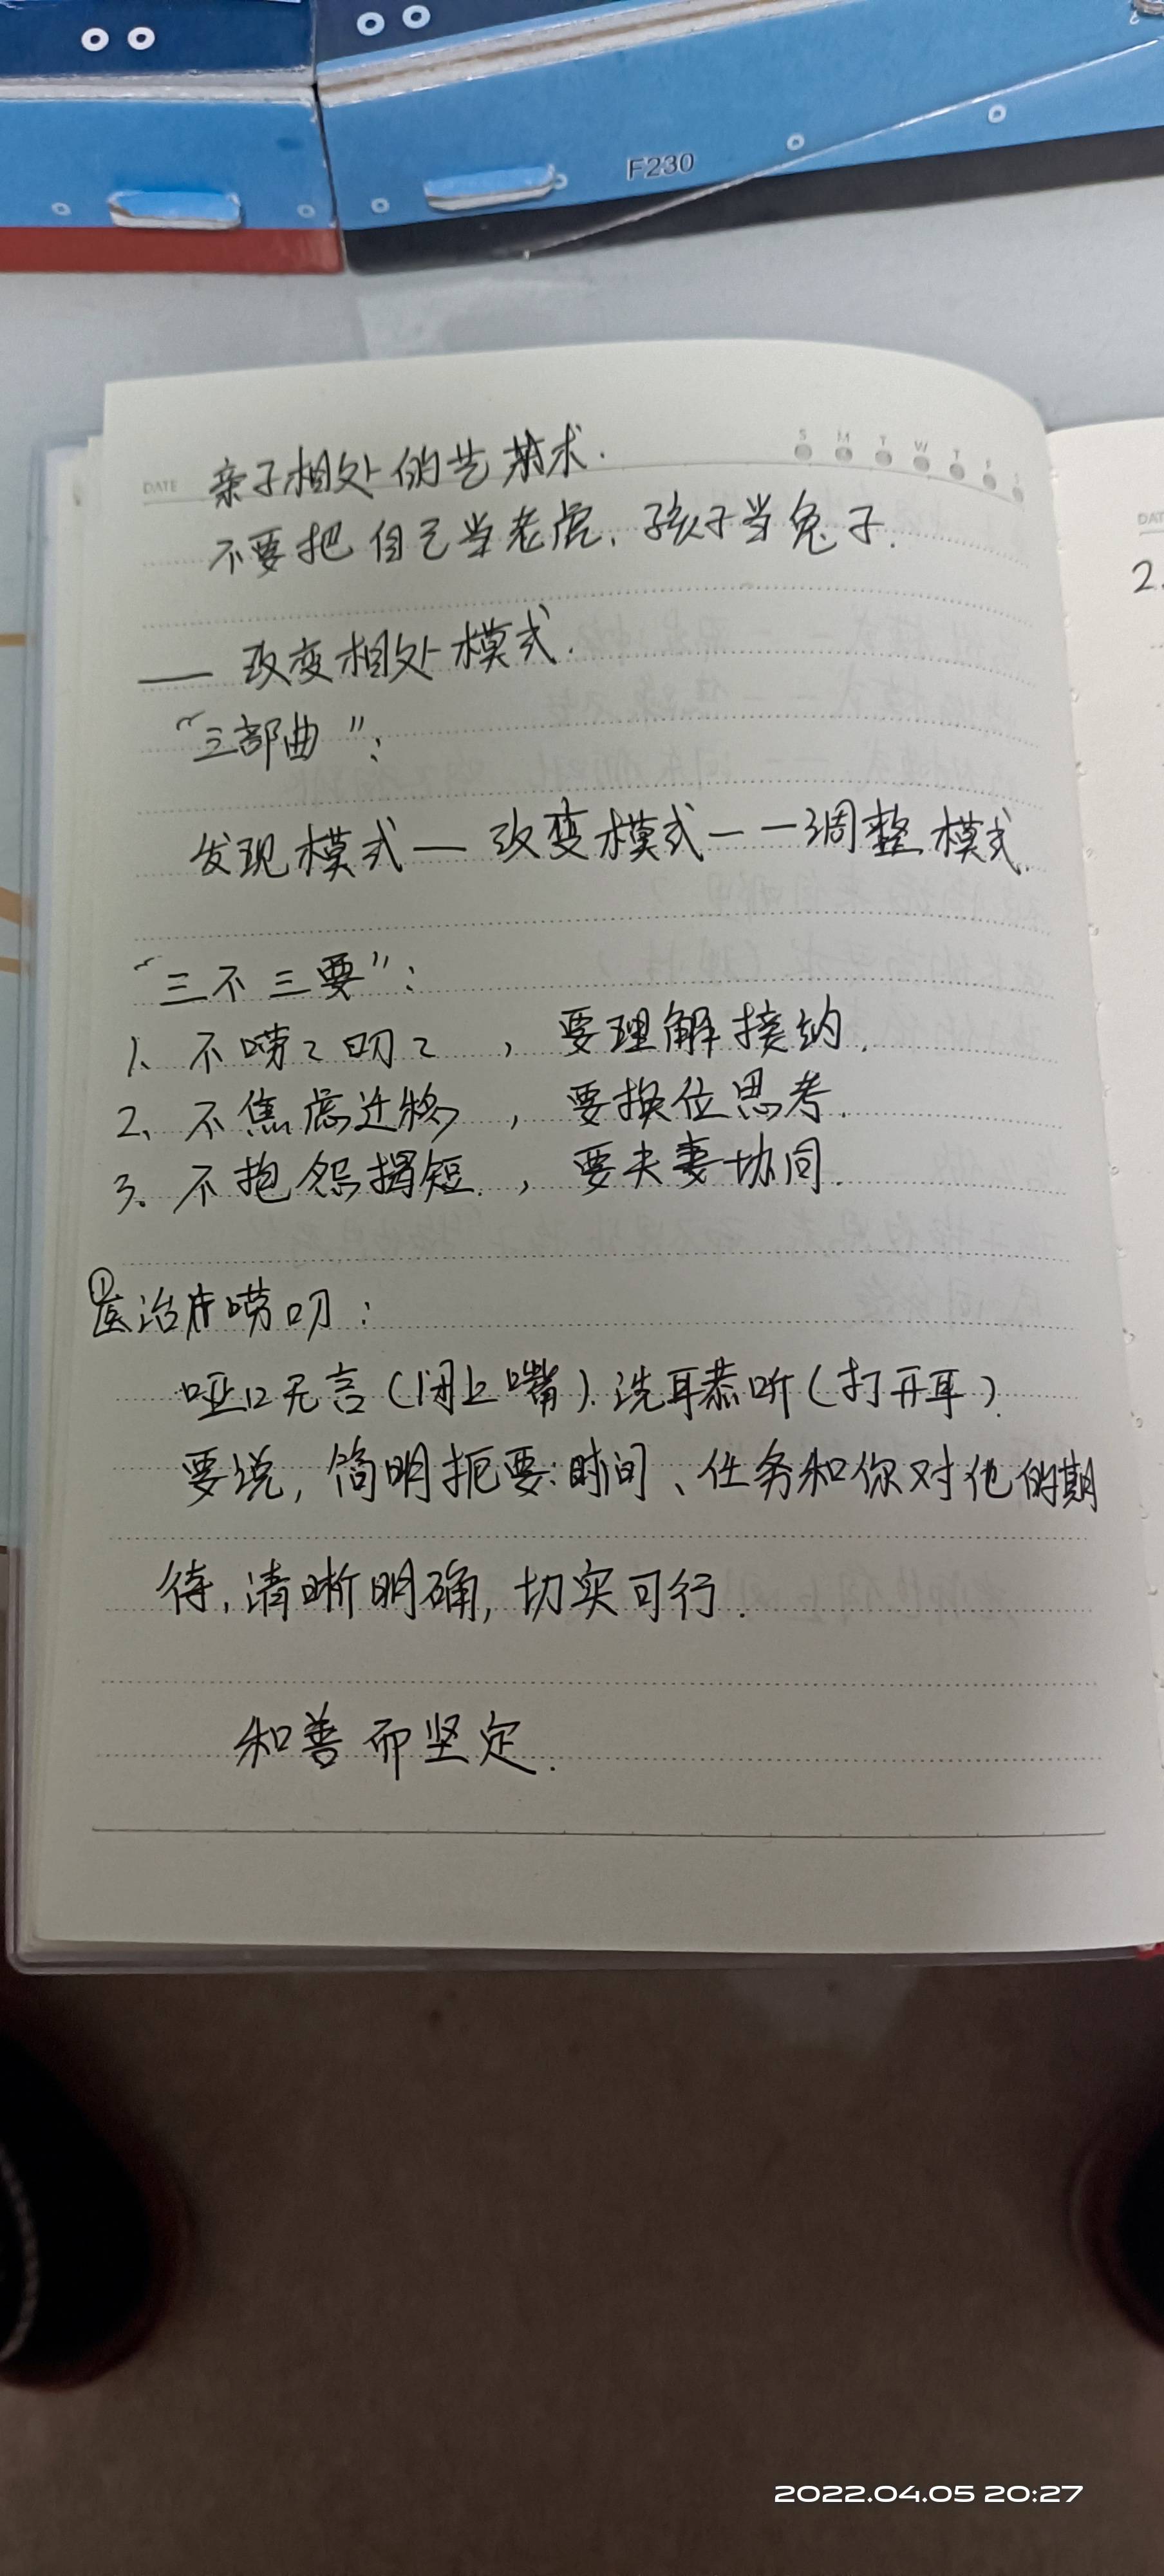 F230
DATE
S M T W T F S
亲子相处的艺术.
不要把自己当老虎,孩子当兔子.
—— 改变相处模式.
“三部曲”:
发现模式——改变模式——调整模式.
“三不三要”:
1、不唠ㄑ叨ㄑ,要理解接纳.
2、不焦虑迁移,要换位思考.
3、不抱怨揭短.,要夫妻协同.
①医治唠叨:
哑口无言(闭上嘴).洗耳恭听(打开耳).
要说,简明扼要:时间、任务和你对他的期
待,清晰明确,切实可行.
和善而坚定.
DAT
2.
2022.04.05 20:27